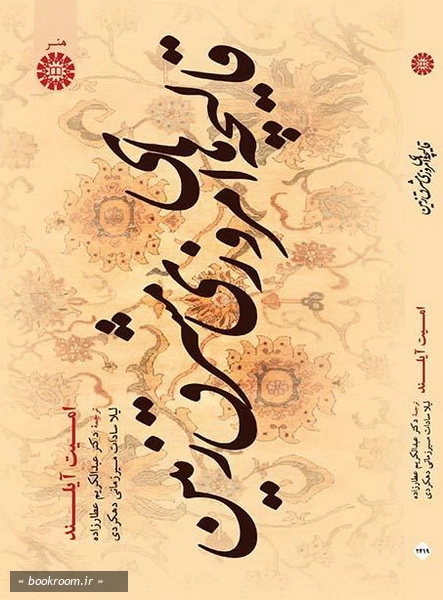 هنر
قالیچه‌های امروزی مشرق زمین
امیت آیلند
ترجمهٔ دکتر عبدالکریم عطارزاده
لیلا سادات میرزمانی دهکردی
قالیچه‌های امروزی مشرق زمین
امیت آیلند
ترجمهٔ دکتر عبدالکریم عطارزاده
لیلا سادات میرزمانی دهکردی
۲۴۱۹
« bookroom.ir »